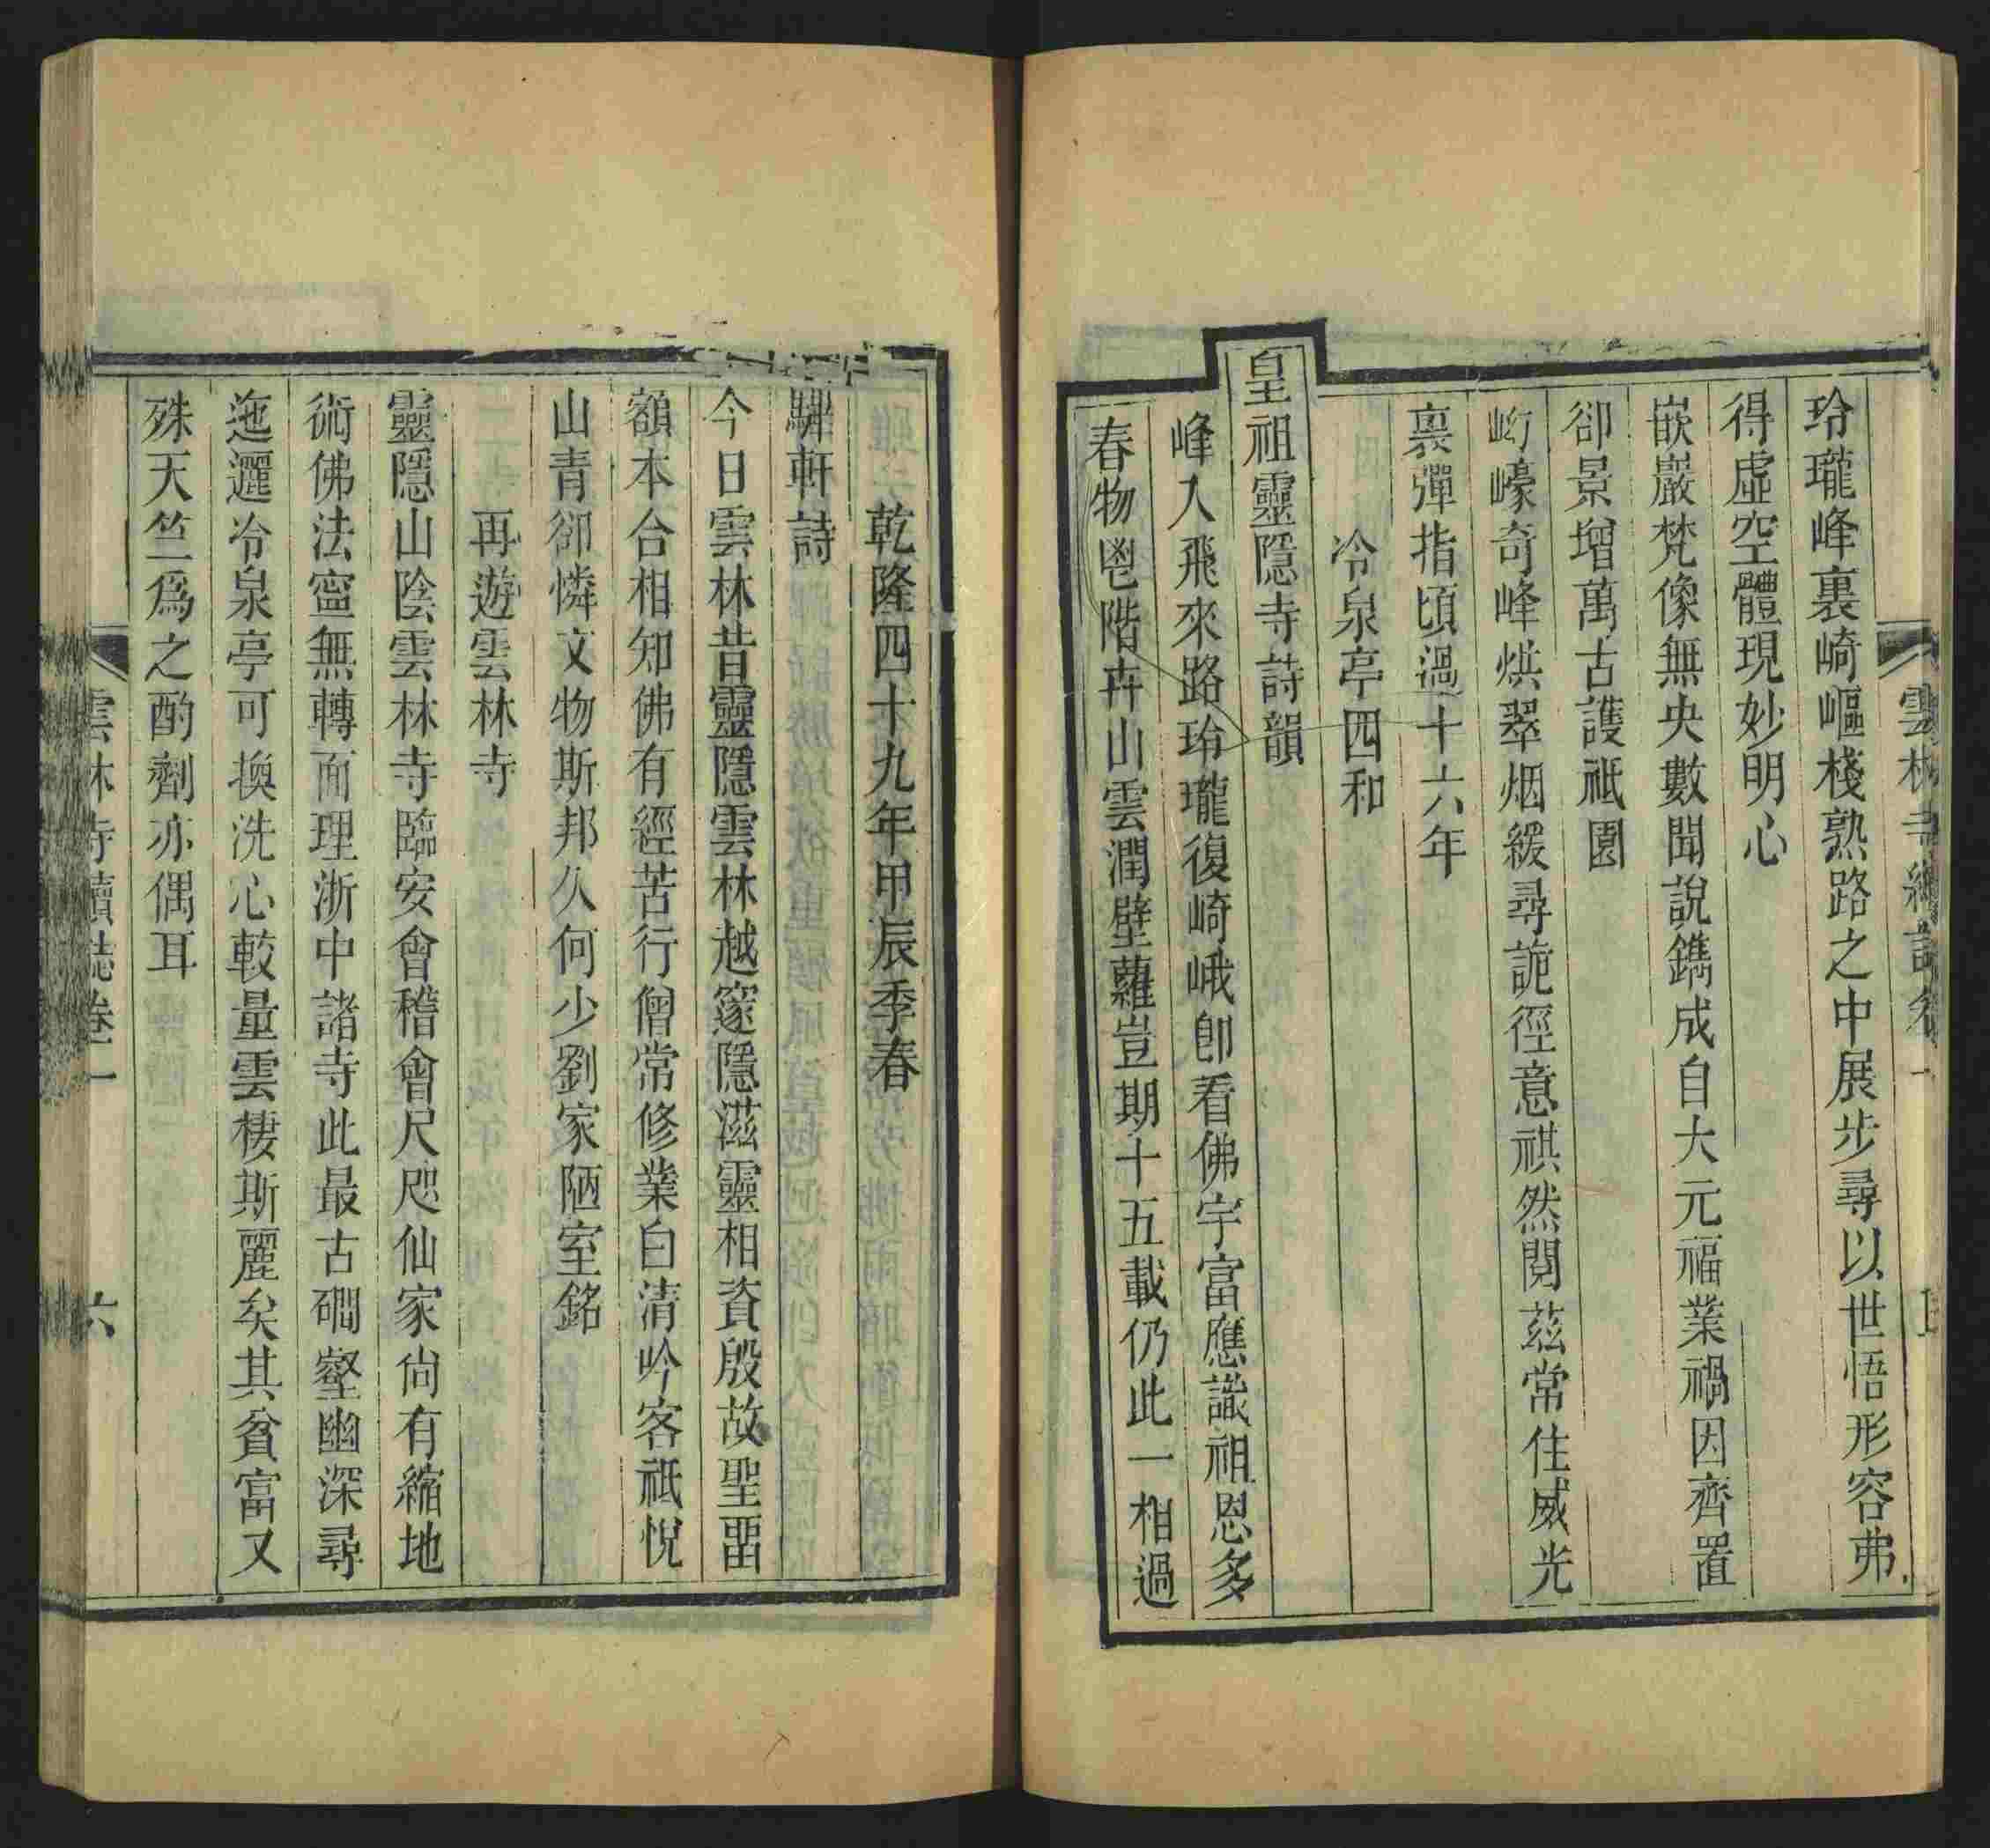 玲瓏峰裏崎嶇棧熟路之中展步尋以世悟形容弗
得虛空體現妙明心
嵌巖梵像無央數聞說鐫成自大元福業禍因齊置
卻景增萬古護祇園
㟏㠙奇峰烘翠烟緩尋詭徑意祺然閱茲常住威光
裏彈指頃過十六年
冷泉亭四和
皇祖靈隱寺詩韻
峰入飛來路玲瓏復崎峨卽看佛宇富應識祖恩多
春物鬯階卉山雲潤壁蘿豈期十五載仍此一相過
乾隆四十九年甲辰季春
韡軒詩
今日雲林昔靈隱雲林越邃隱滋靈相資殷故聖畱
額本合相知佛有經苦行僧常修業白清吟客祗悅
山青卻憐文物斯邦久何少劉家陋室銘
再遊雲林寺
靈隱山陰雲林寺臨安會稽會尺咫仙家尙有縮地
術佛法寧無轉而理浙中諸寺此最古磵壑幽深尋
迤邐冷泉亭可換洗心較量雲棲斯麗矣其貧富又
殊天竺爲之酌劑亦偶耳
雲林寺續誌卷一
六